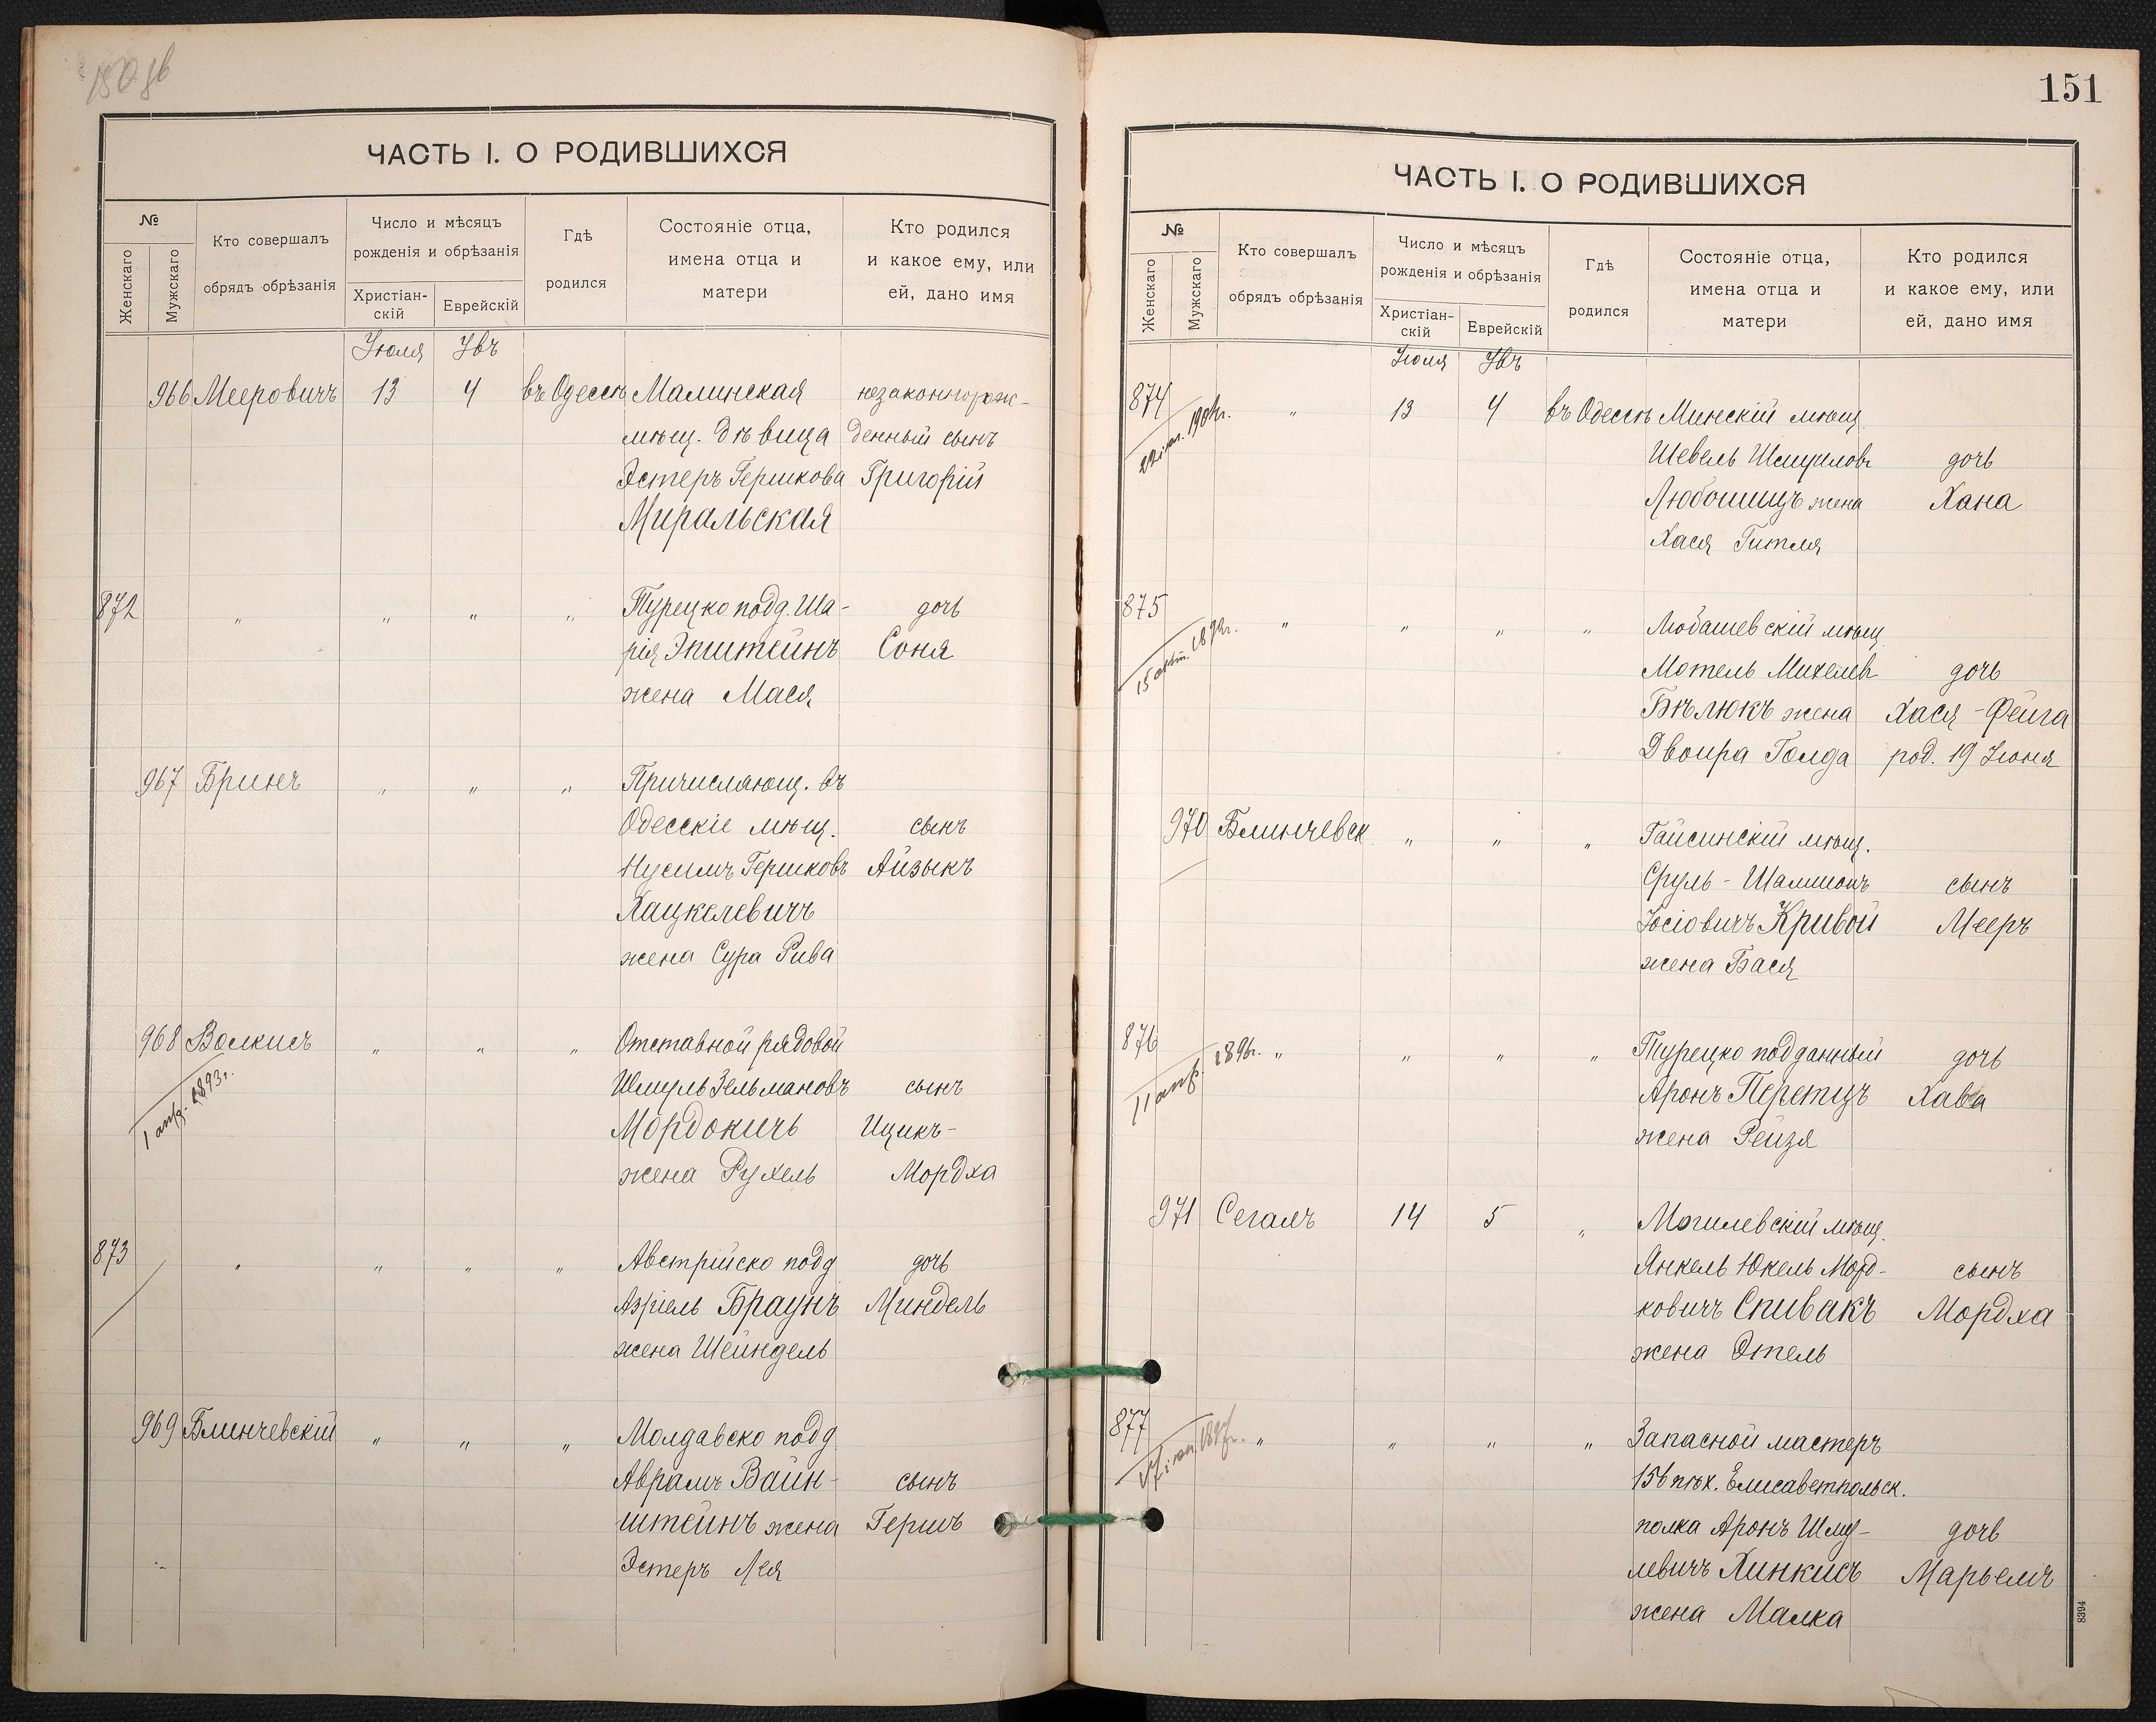 ЧАСТЬ I. О РОДИВШИХСЯ
№
Женскаго
Мужскаго
Кто совершалъ
обрядъ обрѣзанія
Число и мѣсяцъ
рожденія и обрѣзанія
Христіан-
скій
Еврейскій
Гдѣ
родился
Состояніе отца,
имена отца и
матери
Кто родился
и какое ему, или
ей, дано имя
Іюля Увъ
966 Мееровичъ 13 4 въ Одессѣ Малинская незаконнорож-
мѣщ. дѣвица денный сынъ
Эстеръ Гершкова Григорій
Миральская
872 " " " " Турецко подд. Ша- дочь
рія Эпштейнъ Соня
жена Мася
967 Бринъ " " " Причисляющ. въ
Одесскіе мѣщ. сынъ
Нусимъ Гершковъ Айзыкъ
Хацкелевичъ
жена Сура Рива
968 Волкисъ " " " Отставной рядовой
1 апр. 1893г. Шмуль Зельмановъ сынъ
Мордокичъ Ицикъ-
жена Рухель Мордха
873 " " " " Австрійско подд дочь
Азріель Браунъ Миндель
жена Шейндель
969 Блинчевскій " " " Молдавско подд
Аврамъ Вайн- сынъ
штейнъ жена Гершъ
Эстеръ Лея
151
ЧАСТЬ I. О РОДИВШИХСЯ
№
Женскаго
Мужскаго
Кто совершалъ
обрядъ обрѣзанія
Число и мѣсяцъ
рожденія и обрѣзанія
Христіан-
скій
Еврейскій
Гдѣ
родился
Состояніе отца,
имена отца и
матери
Кто родился
и какое ему, или
ей, дано имя
Іюля Увъ
874 " 13 4 въ Одессѣ Минскій мѣщ.
Шевель Шмуиловъ дочь
Любошицъ жена Хана
Хася Гитля
875 " " " " Любашевскій мѣщ
Мотель Михелев дочь
Бѣлюкъ жена Хася-Фейга
Двойра Голда род. 19 Іюня
970 Блинчевск " " " Гайсинскій мѣщ.
Сруль-Шамшонъ сынъ
Іосіовичъ Кривой Мееръ
жена Бася
876 " " " " Турецко подданный дочь
11 апр. 1896г. Аронъ Перетцъ Хава
жена Рейзя
971 Сегалъ 14 5 " Могилевскій мѣщ.
Янкель Юкель Морд- сынъ
ковичъ Спивакъ Мордха
жена Этель
877 " " " " Запасной мастеръ
156 пѣх. Елисаветпольск.
полка Аронъ Шму- дочь
левичъ Хинкисъ Марьемъ
жена Малка
8394